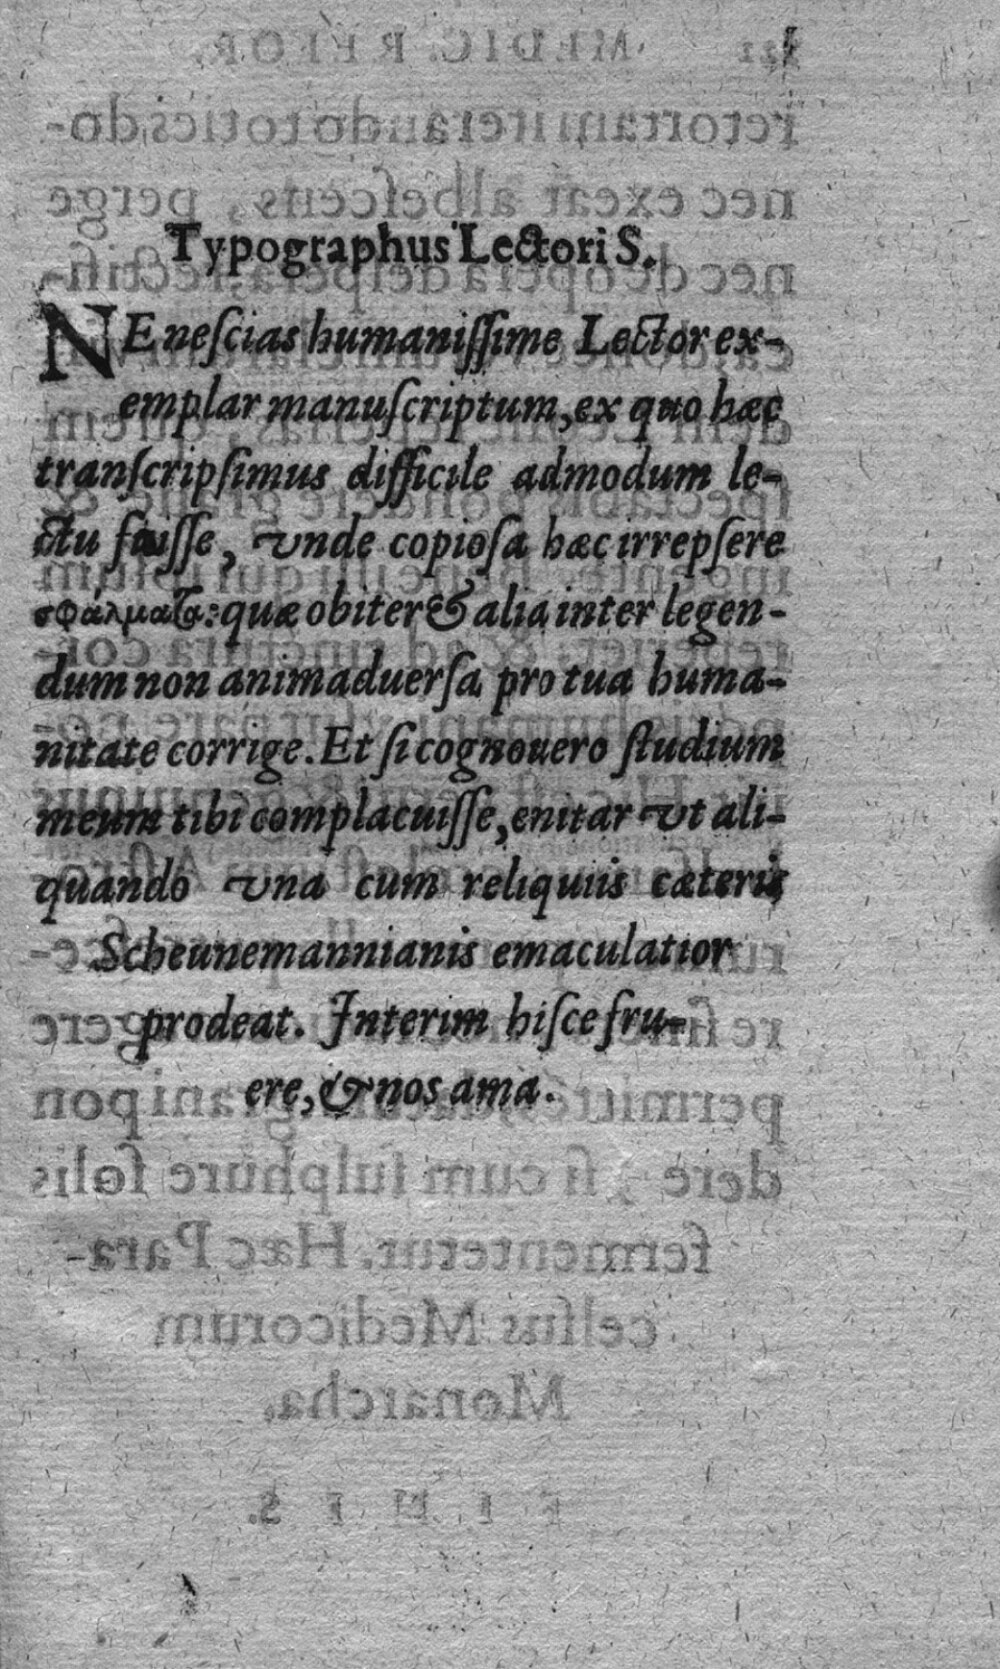 Typographus Lectori S.
NE neſcias humaniſſime Lector ex-
emplar manuſcriptum, ex quo hæc
tranſcripſimus difficile admodum le-
ctu fuiſſe, vnde copioſa hæc irrepſere
σφάλματα: quæ obiter & alia inter legen-
dum non animaduerſa pro tua huma-
nitate corrige. Et ſi cognouero ſtudium
meum tibi complacuiſſe, enitar vt ali-
quando vna cum reliquiis cæteris
Scheunemannianis emaculatior
prodeat. Interim hiſce fru-
ere, & nos ama.